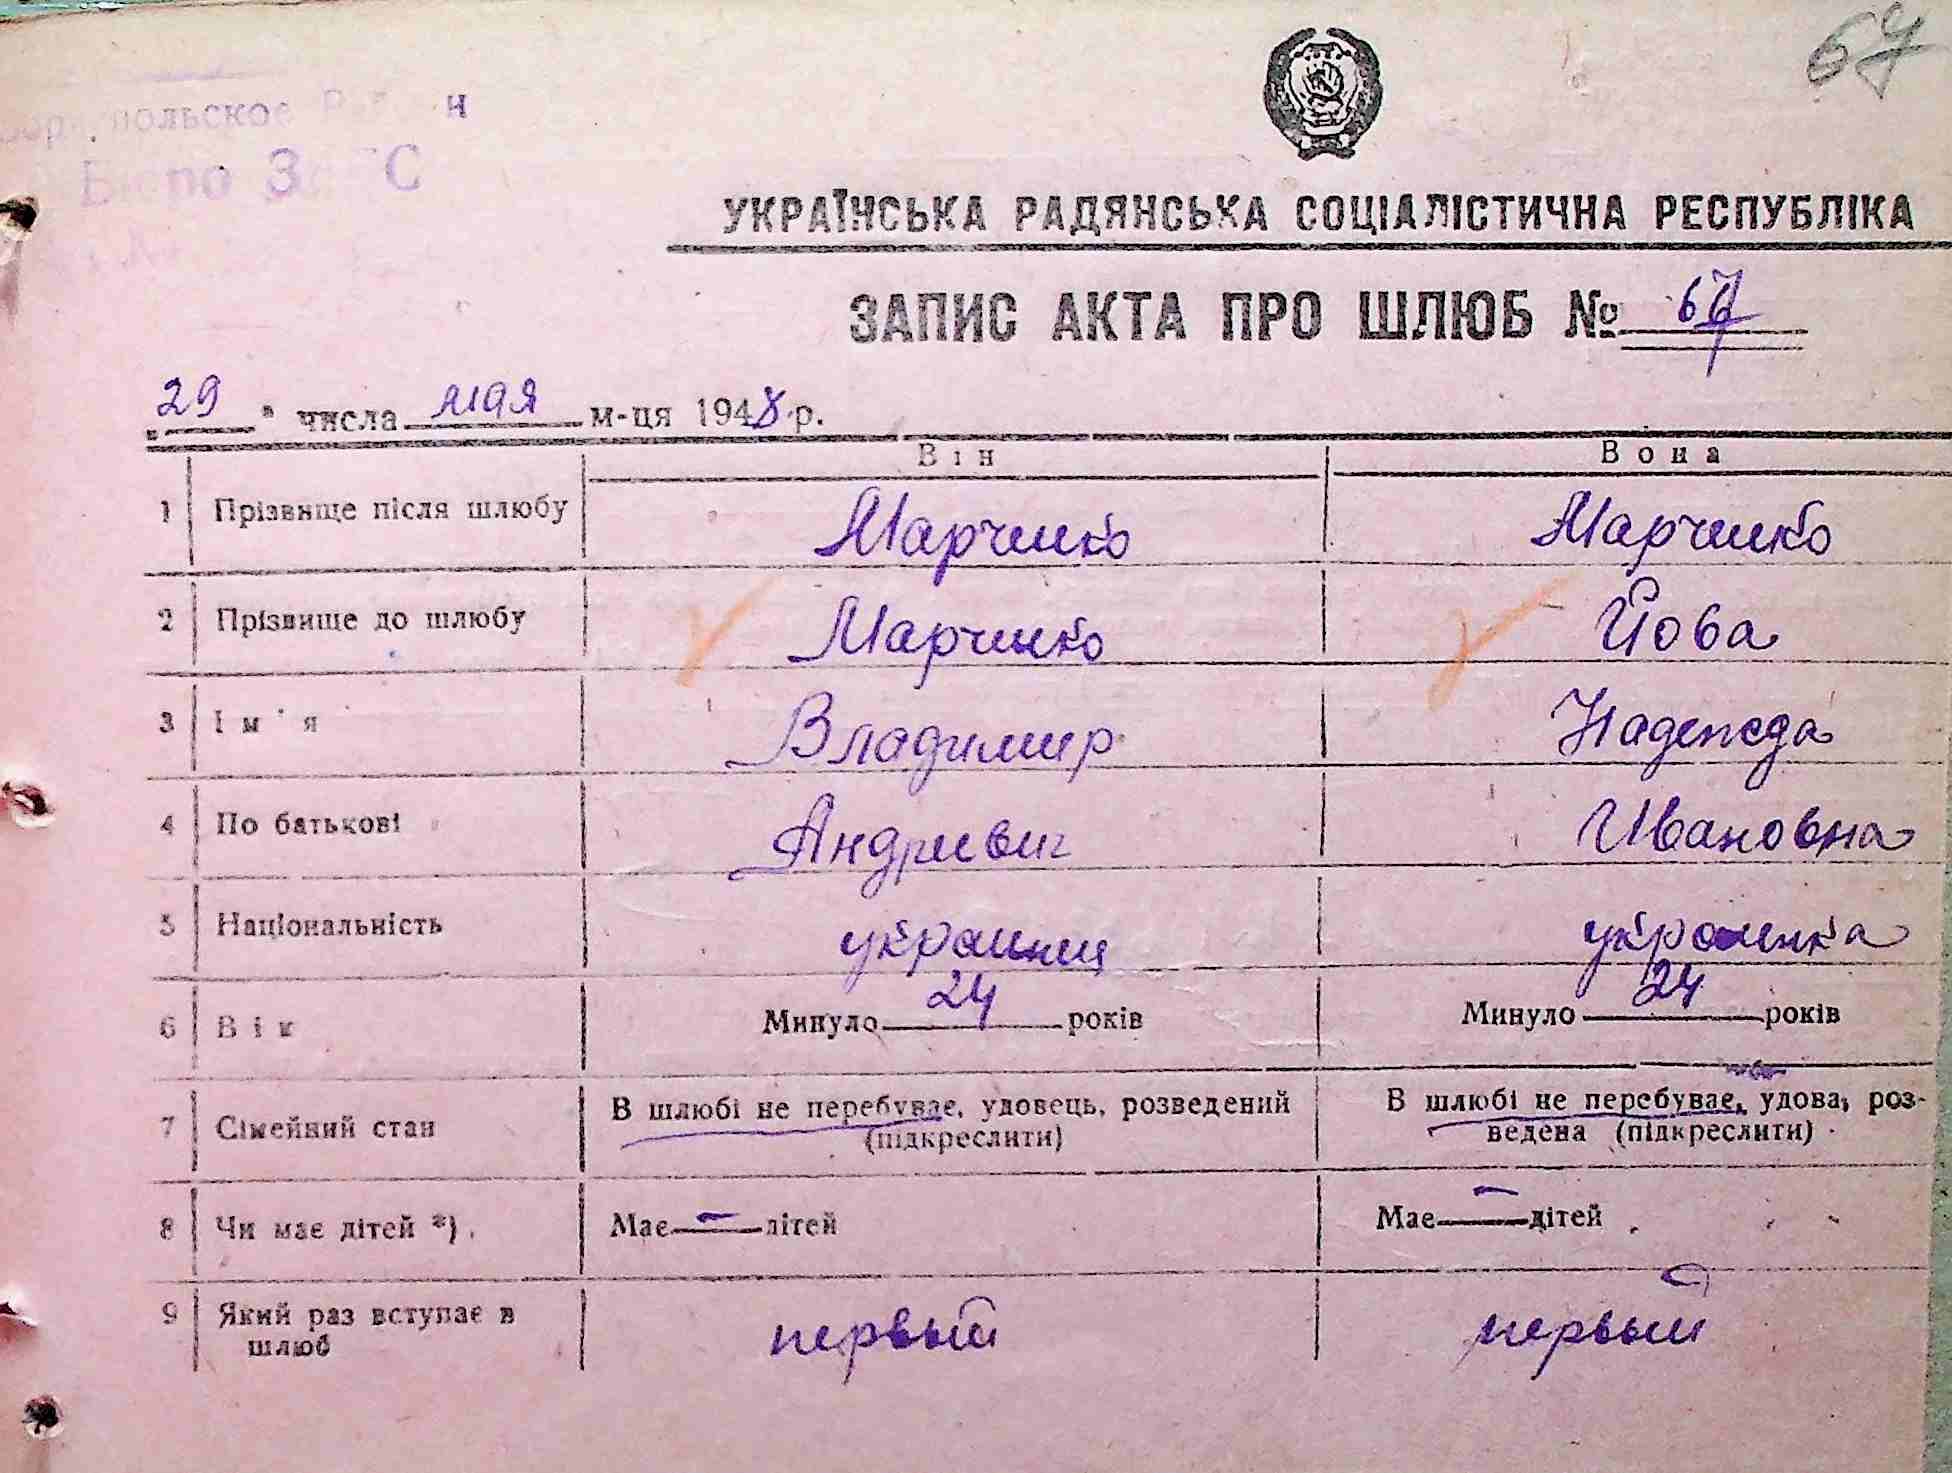 67
польское
Бюро ЗАГС
УКРАЇНСЬКА РАДЯНСЬКА СОЦІАЛІСТИЧНА РЕСПУБЛІКА
ЗАПИС АКТА ПРО ШЛЮБ № 67
"29" числа мая м-ця 1948 р.
Він Вона
1 Прізвище після шлюбу Марченко Марченко
2 Прізвище до шлюбу Марченко Йова
3 Ім'я Владимир Надежда
4 По батькові Андреевич Ивановна
5 Національність украинец украинка
6 Вік Минуло 24 років Минуло 24 років
7 Сімейний стан В шлюбі не перебуває, удовець, розведений (підкреслити) В шлюбі не перебуває, удова, роз-
ведена (підкреслити)
8 Чи має дітей *) Має — дітей Має — дітей
9 Який раз вступає в
шлюб первый первый